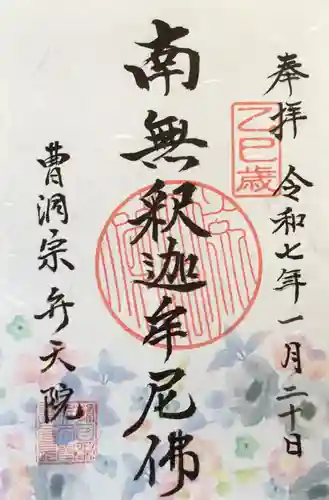 奉拝
令和七年一月二十日
乙巳歳
南無釈迦牟尼佛
曹洞宗弁天院